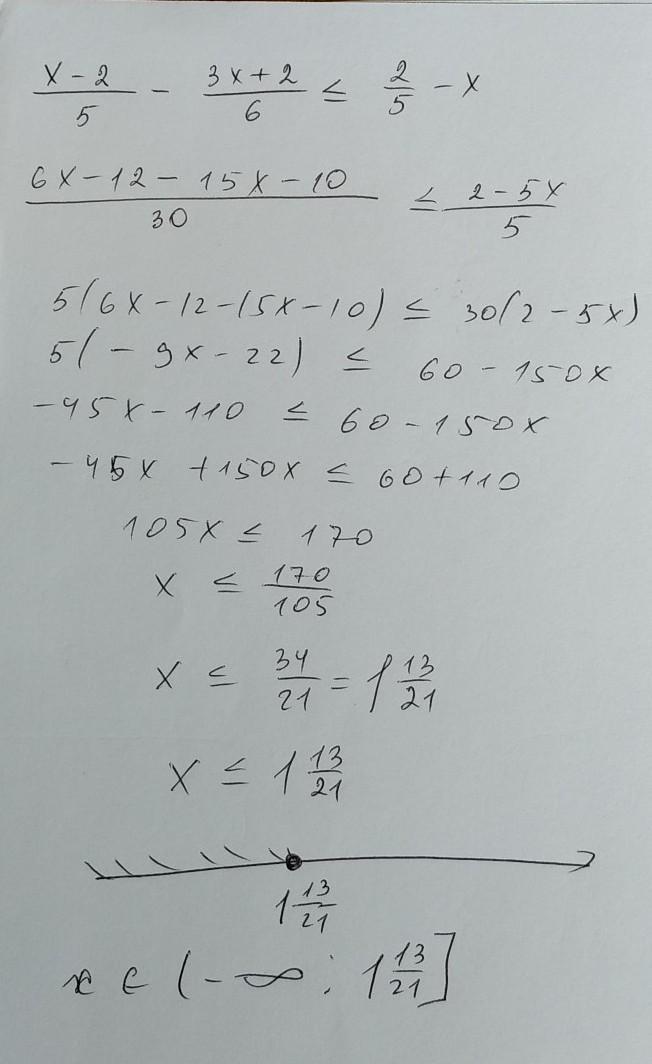 (x-2)/5 - (3x+2)/6 ≤ 2/5 - x
(6x-12-15x-10)/30 ≤ (2-5x)/5
5(6x-12-15x-10) ≤ 30(2-5x)
5(-9x-22) ≤ 60-150x
-45x-110 ≤ 60-150x
-45x+150x ≤ 60+110
105x ≤ 170
x ≤ 170/105
x ≤ 34/21 = 1 13/21
x ≤ 1 13/21
1 13/21
x ∈ (-∞; 1 13/21]